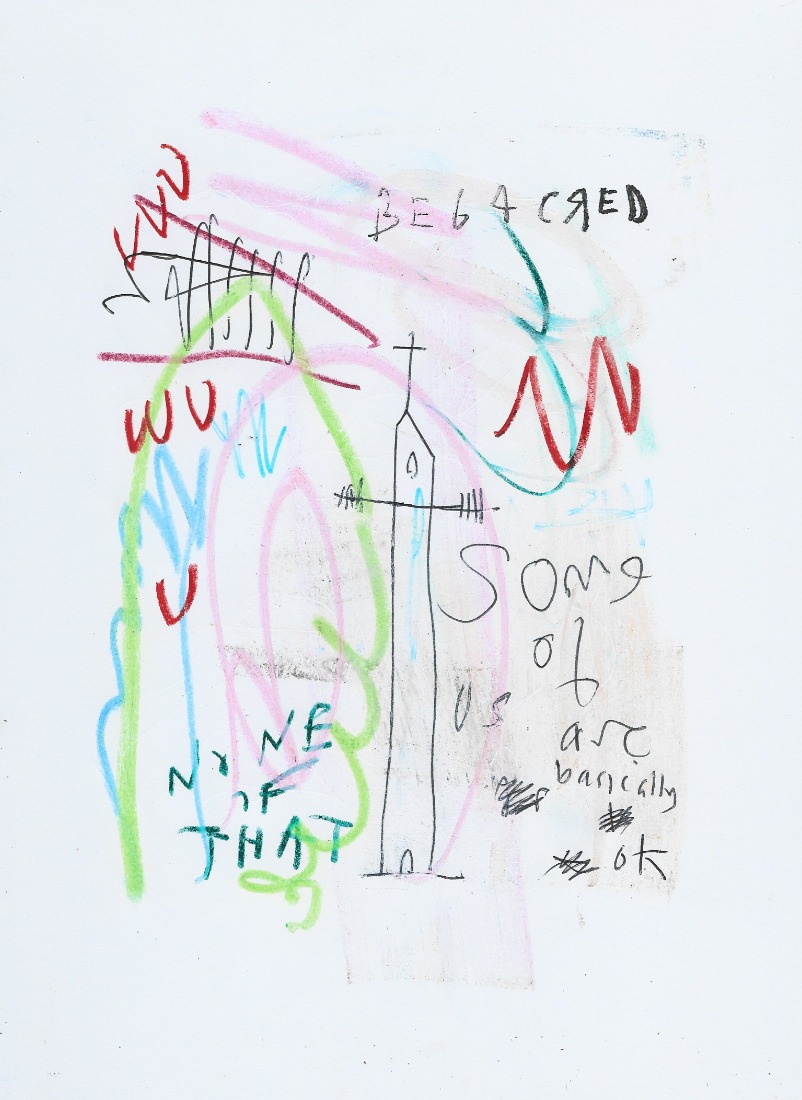 BE6ACRED
WU
U
SOME
of
us
are
basically
ok
NONE
OF
THAT